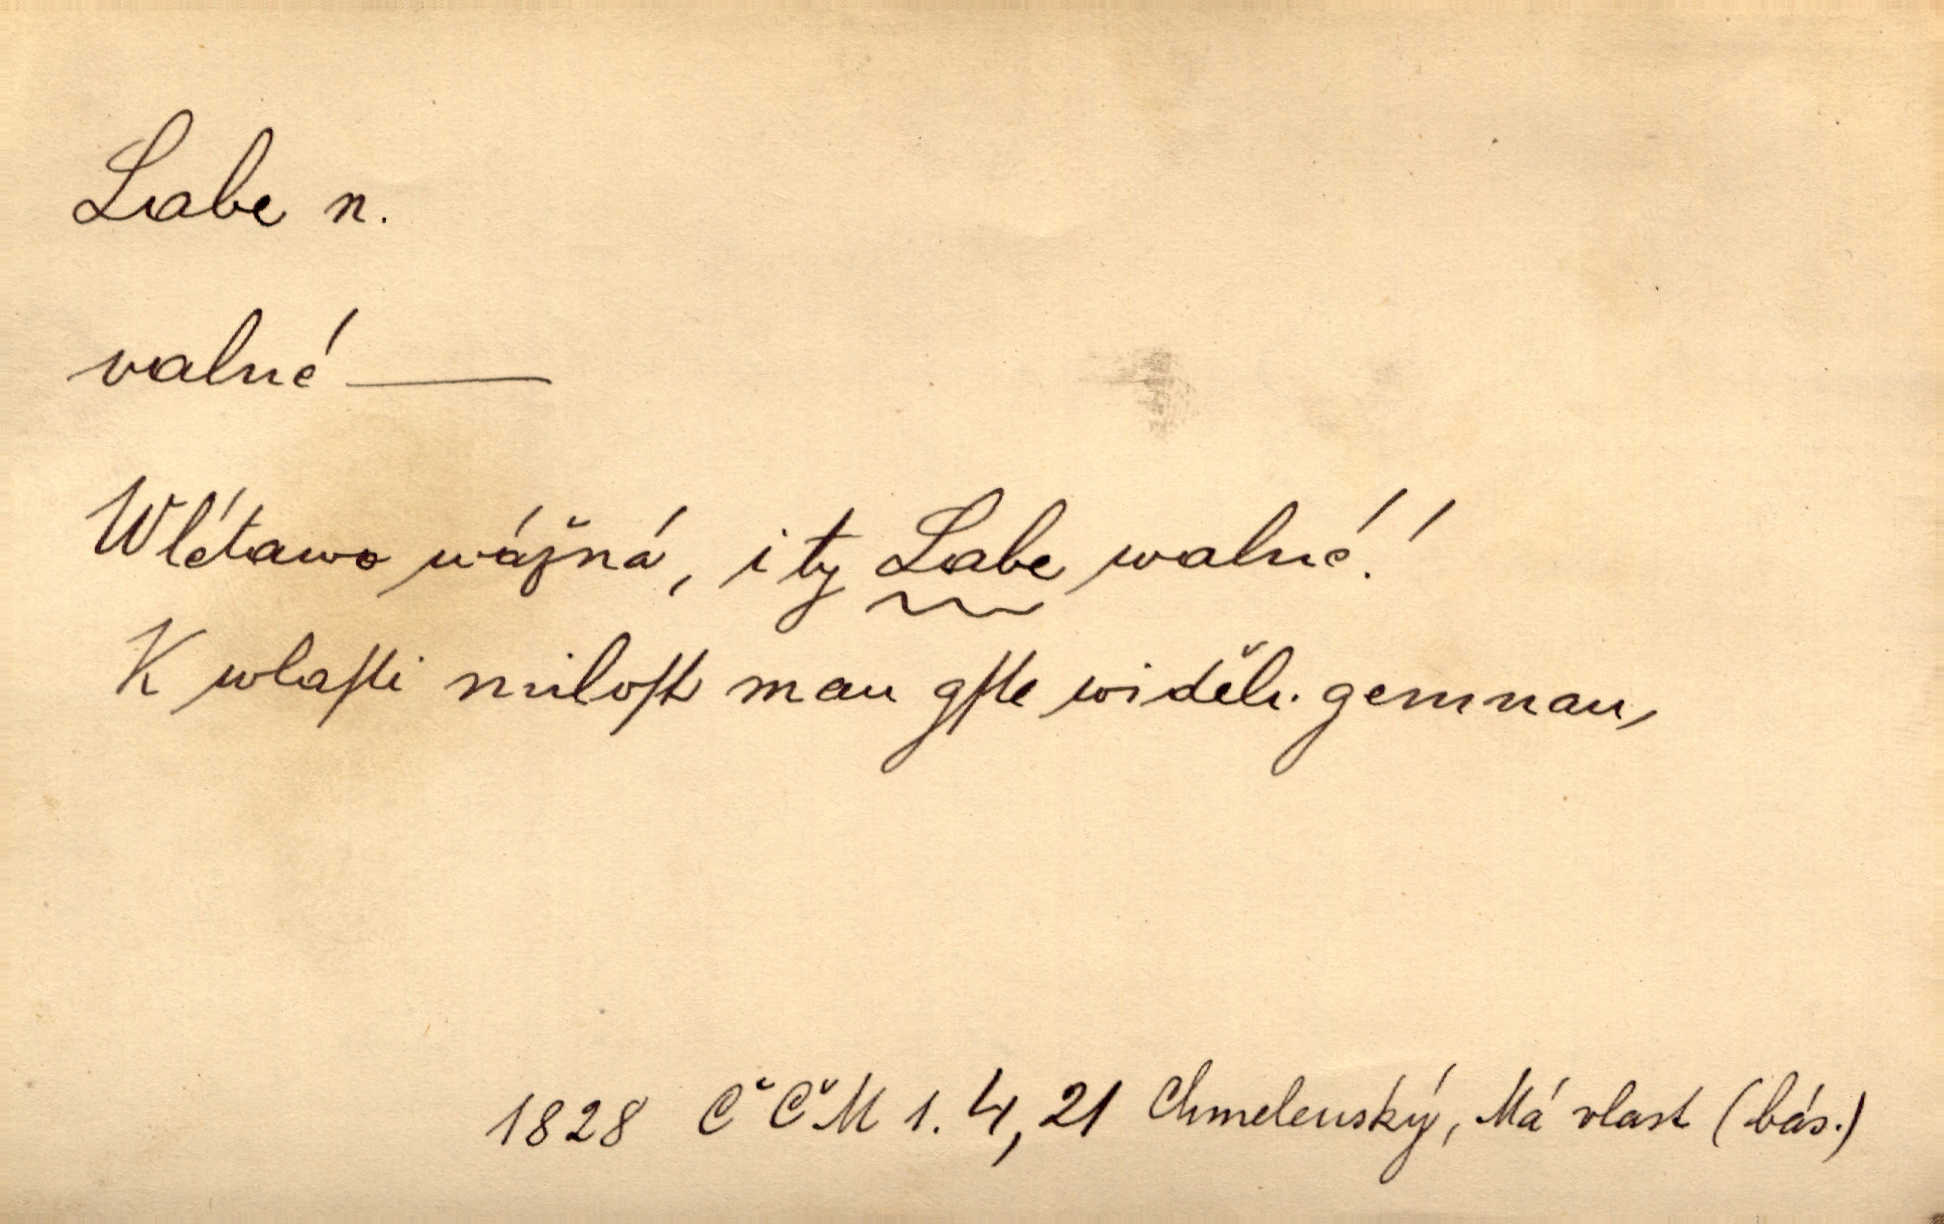 Labe n.
valné ——
Wlétawo wážná, i ty Labe walné!
K wlaſti miloſt mau gſte widěli gemnau,
1828 ČČM 1. 4, 21 Chmelenský, Má vlast (bás.)